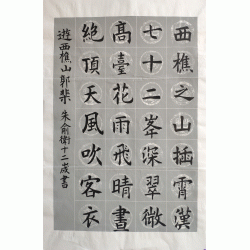 西樵之山插霄漢
七十二峯深翠微
髙臺花雨飛晴晝
絕頂天風吹客衣
遊西樵山郭棐 朱俞衛十二歲書